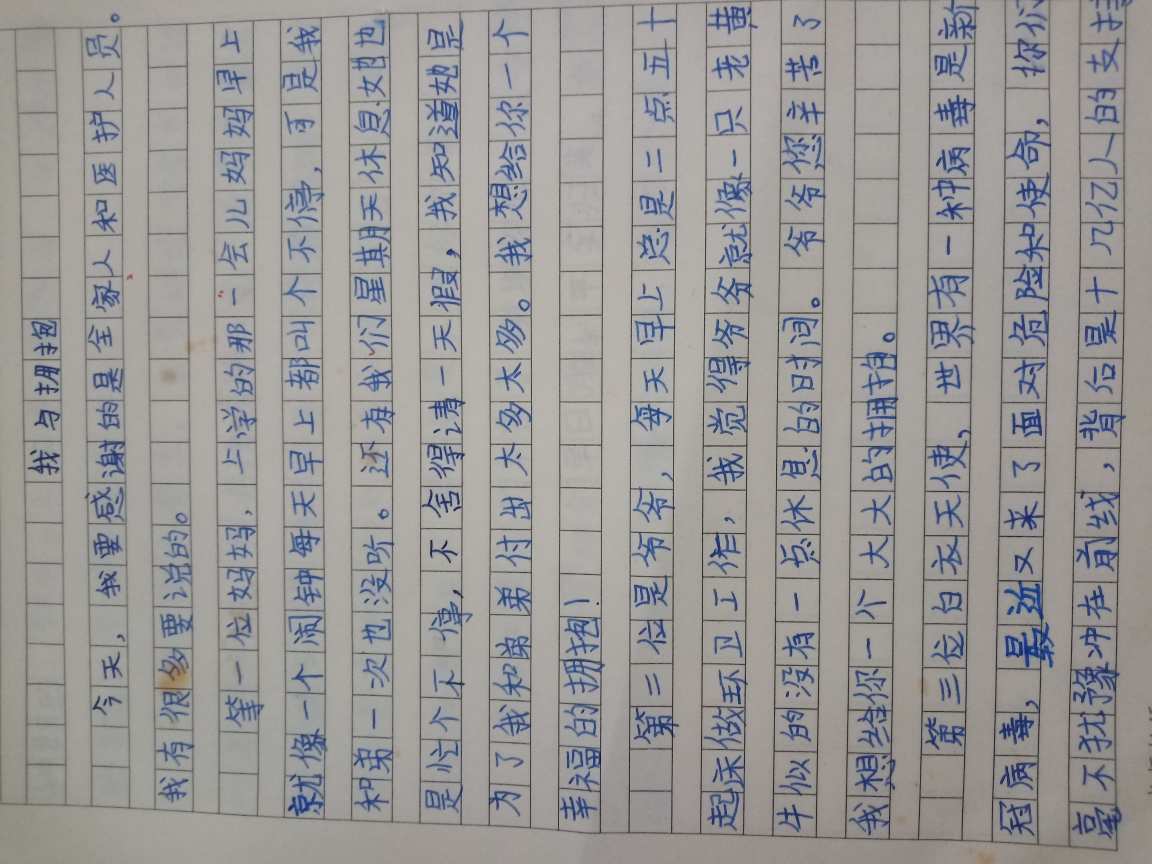 我与拥抱
今天，我要感谢的是全家人和医护人员。
我有很多要说的。
第一位妈妈，上学的那一会儿妈妈早上
就像一个闹钟每天早上都叫个不停，可是我
和弟一次也没听。还有我们星期天休息她也
是忙个不停，不舍得请一天假，我知道她是
为了我和弟弟付出太多太多。我想给你一个
幸福的拥抱！
第二位是爷爷，每天早上总是二点五十
起床做环卫工作，我觉得爷爷就像一只老黄
牛似的没有一点休息的时间。爷爷您辛苦了
我想给你一个大大的拥抱。
第三位白衣天使，世界有一种病毒是新
冠病毒，最近又来了面对危险和使命，你们
毫不犹豫冲在前线，背后是十几亿人的支持